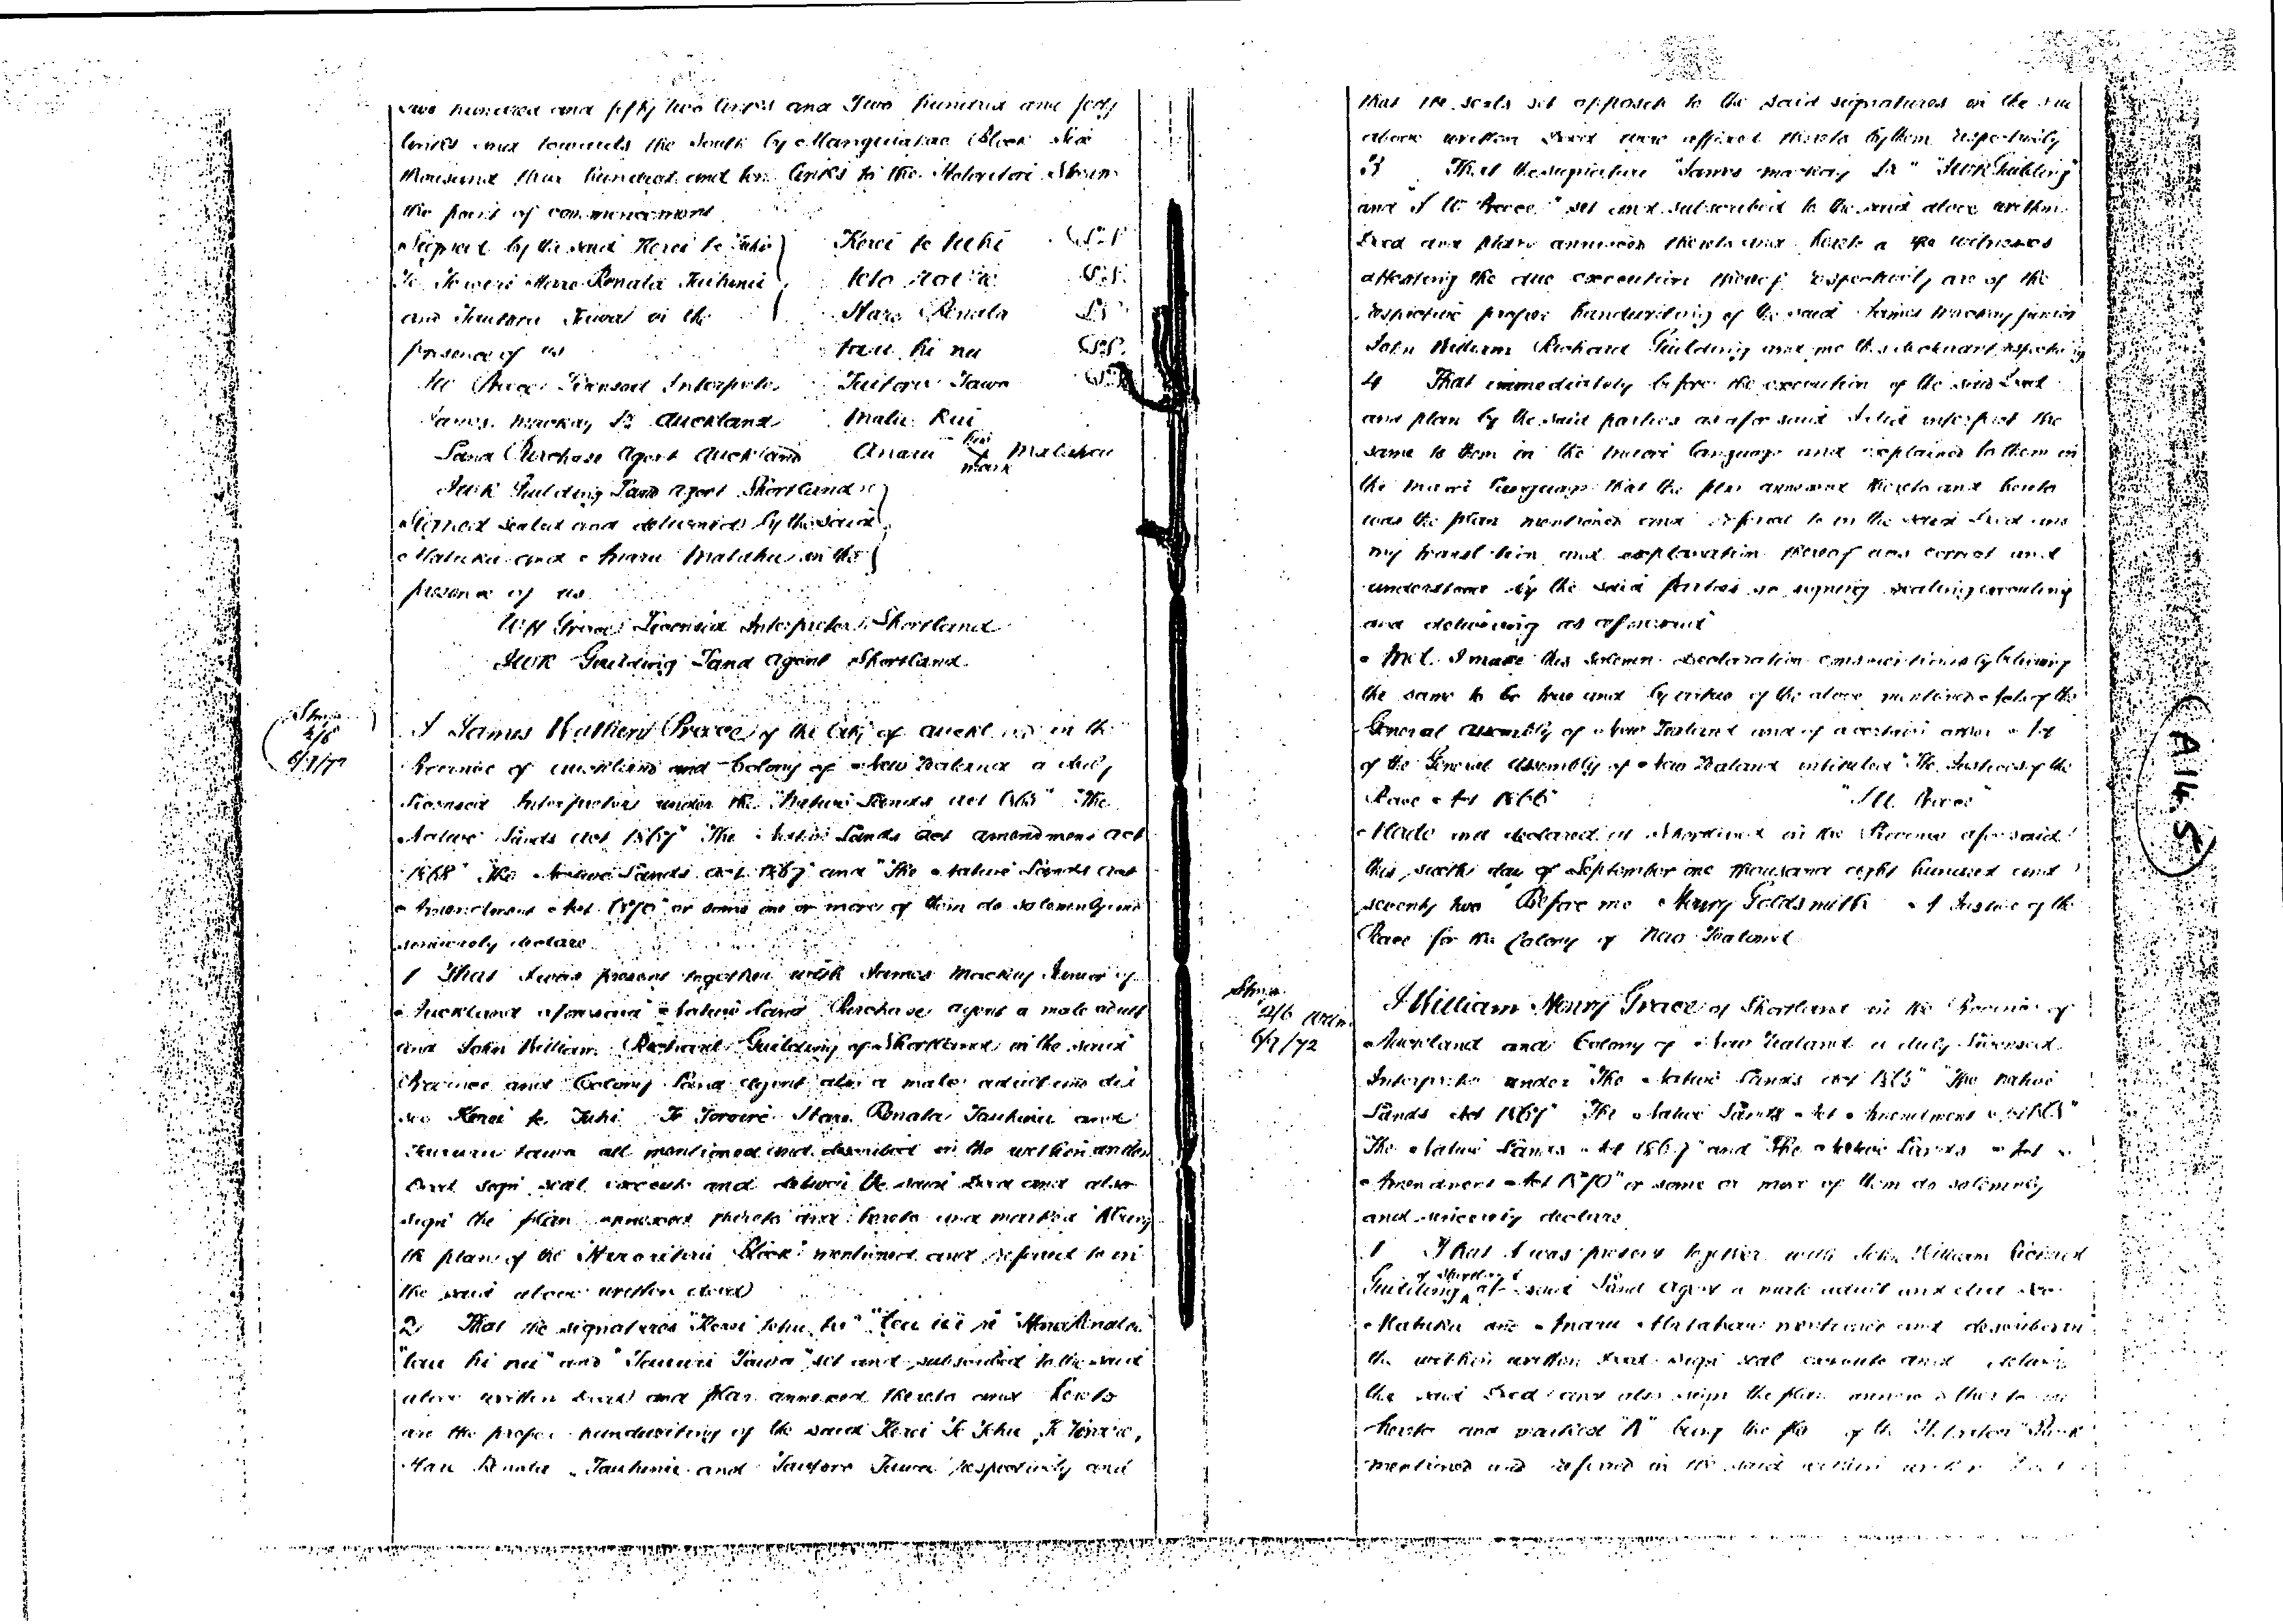 two hundred and fifty two links and Two hundred and forty
links and towards the South by Block Six
thousand three hundred and ten links to the Stream
the point of commencement
Signed by the said Kerei te Tuhi Kerei te tuhi L.S.
Renata Tauhinu
and in the Renata L.S.
presence of us tau hi nu L.S.
Preece Licensed Interpreter Tawa L.S.
James Mackay Jr Auckland
Land Purchase Agent Auckland his mark
JWR Guilding Land Agent Shortland
Signed sealed and delivered by the said
Matuku and in the
presence of us
WH Grace Licensed Interpreter Shortland
JWR Guilding Land Agent Shortland
Stmp
2/6
6/9/72
I James Preece of the City of Auckland in the
Province of Auckland and Colony of New Zealand a duly
licensed Interpreter under the "Native Lands Act 1865" "The
Native Lands Act 1867" "The Native Lands Act Amendment Act
1868" "The Native Lands Act 1867" and "The Native Lands Act
Amendment Act 1870" or some one or more of them do solemnly and
sincerely declare
1 That I was present together with James Mackay Junior of
Auckland aforesaid Native Land Purchase Agent a male adult
and John William Richard Guilding of Shortland in the said
Province and Colony Land Agent also a male adult and did
see Kerei te Tuhi Renata Tauhinu and
Tawa all mentioned and described in the within written
Deed sign seal execute and deliver the said Deed and also
sign the plan annexed thereto and hereto and marked A being
the plan of the Block mentioned and referred to in
the said above written deed
2 That the signatures "Kerei
"tau hi nu" and Tawa" set and subscribed to the said
above written Deed and plan annexed thereto and hereto
are the proper handwriting of the said Kerei Te
Renata Tauhinu and Tawa respectively and
that the seals set opposite to the said signatures in the said
above written Deed were affixed thereto by them respectively
3 That the signature "James Mackay Jr" "JWR Guilding"
and "J W Preece" set and subscribed to the said above written
Deed and plan annexed thereto and hereto as witnesses
attesting the due execution thereof respectively are of the
respective proper handwriting of the said James Mackay junior
John William Richard Guilding and me this declarant respectively
4 That immediately before the execution of the said Deed
and plan by the said parties as aforesaid I did interpret the
same to them in the Maori language and explained to them in
the Maori language that the plan annexed thereto and hereto
was the plan mentioned and referred to in the said Deed and
my translation and explanation thereof was correct and
understood by the said parties so signing sealing executing
and delivering as aforesaid
And I make this solemn declaration conscientiously believing
the same to be true and by virtue of the above mentioned Acts of the
General Assembly of New Zealand and of a certain other Act
of the General Assembly of New Zealand intituled "The Justices of the
Peace Act 1866" "J W Preece"
Made and declared at Shortland in the Province aforesaid
this sixth day of September one thousand eight hundred and
seventy two Before me Henry Goldsmith A Justice of the
Peace for the Colony of New Zealand
Stmp
2/6
6/9/72
I William Henry Grace of Shortland in the Province of
Auckland and Colony of New Zealand a duly Licensed
Interpreter under "The Native Lands Act 1865" "The Native
Lands Act 1867" "The Native Lands Act Amendment Act 1868"
"The Native Lands Act 1867" and "The Native Lands Act
Amendment Act 1870" or some or more of them do solemnly
and sincerely declare
1 That I was present together with John William Richard
Guilding of Shortland said Land Agent a male adult and did see
Matuku and mentioned and described in
the within written Deed sign seal execute and deliver
the said Deed and also sign the plan annexed thereto and
hereto and marked "A" being the plan of the Block
mentioned and referred in the said within written Deed
A14.5